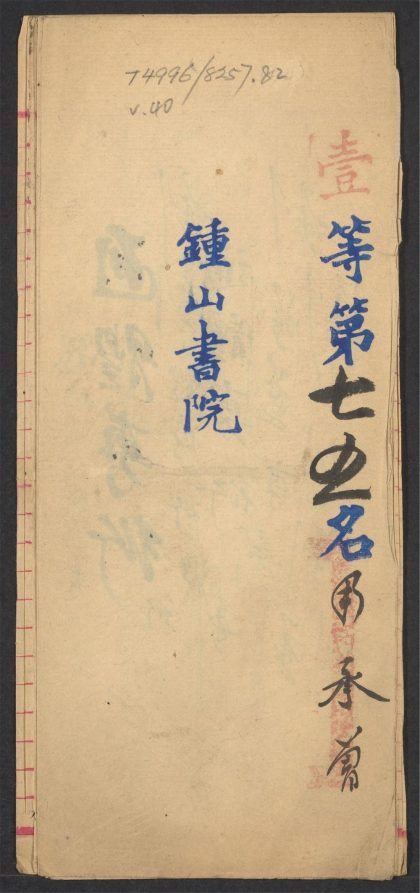 T4996/8257.82
v.40
壹等第七五名
承曾
鍾山書院